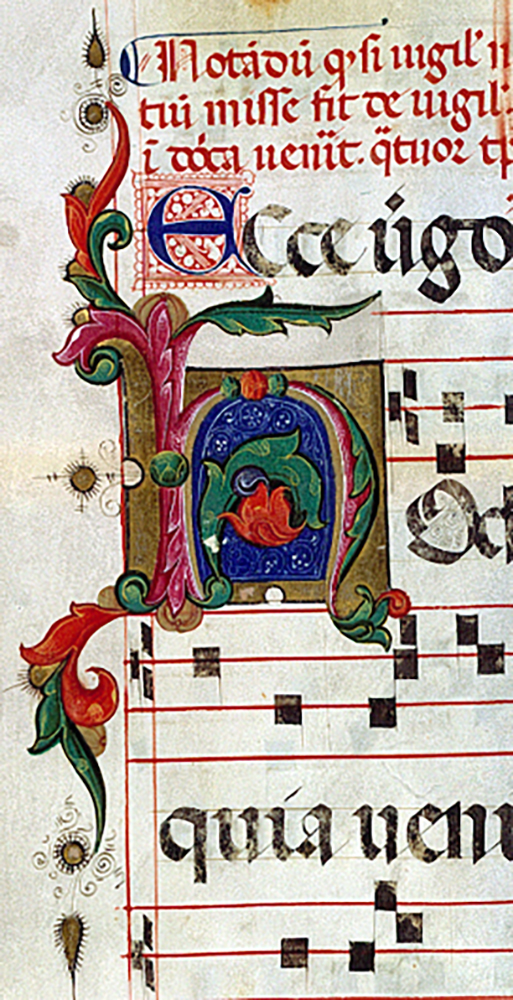 Notādū q̄ si uigil'
tiū misse fit de uigil'
i dōca uenīt. q̄tuor tp
Ecce ūgo
Hoc
quia ueni